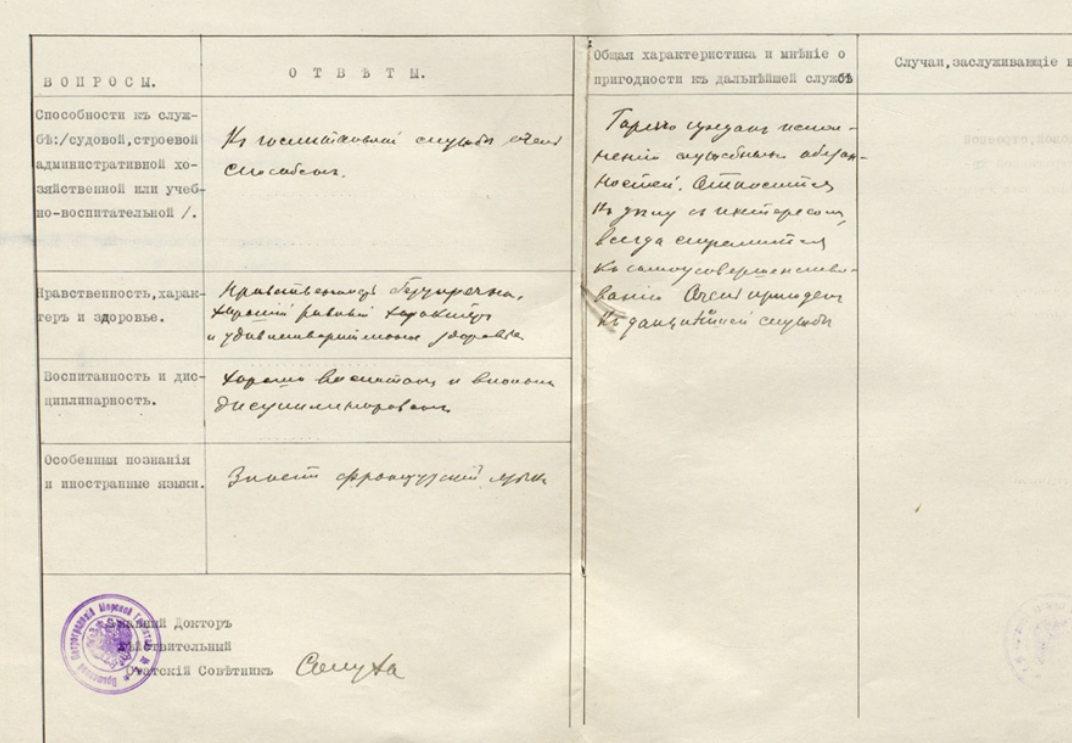 ВОПРОСЫ.
ОТВѢТЫ.
Способности къ служ-
бѣ:/судовой,строевой
административной хо-
зяйственной или учеб-
но-воспитательной /.
Къ госпитальной службѣ очень
способенъ.
Нравственность,харак-
теръ и здоровье.
Нравственность безупречна,
хорошій ровный характеръ
и удовлетворительное здоровье
Воспитанность и дис-
циплинарность.
Хорошо воспитанъ и вполнѣ
дисциплинированъ
Особенныя познанія
и иностранные языки.
Знаетъ французскій языкъ
Главный Докторъ
Дѣйствительный
Статскій Совѣтникъ
Общая характеристика и мнѣніе о
пригодности къ дальнѣйшей службѣ
Горячо преданъ испол-
ненію служебныхъ обязан-
ностей. Относится
къ дѣлу съ интересомъ,
всегда стремится
къ самоусовершенство-
ванію Очень пригоденъ
къ дальнѣйшей службѣ
Случаи,заслуживающіе